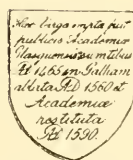 Hæc virga empta fuit
publicis Academiæ
Glasguensis sumtibus
AD 1465 in Galliam
ablata AD 1560 et
Academiæ
restituta
AD 1590.